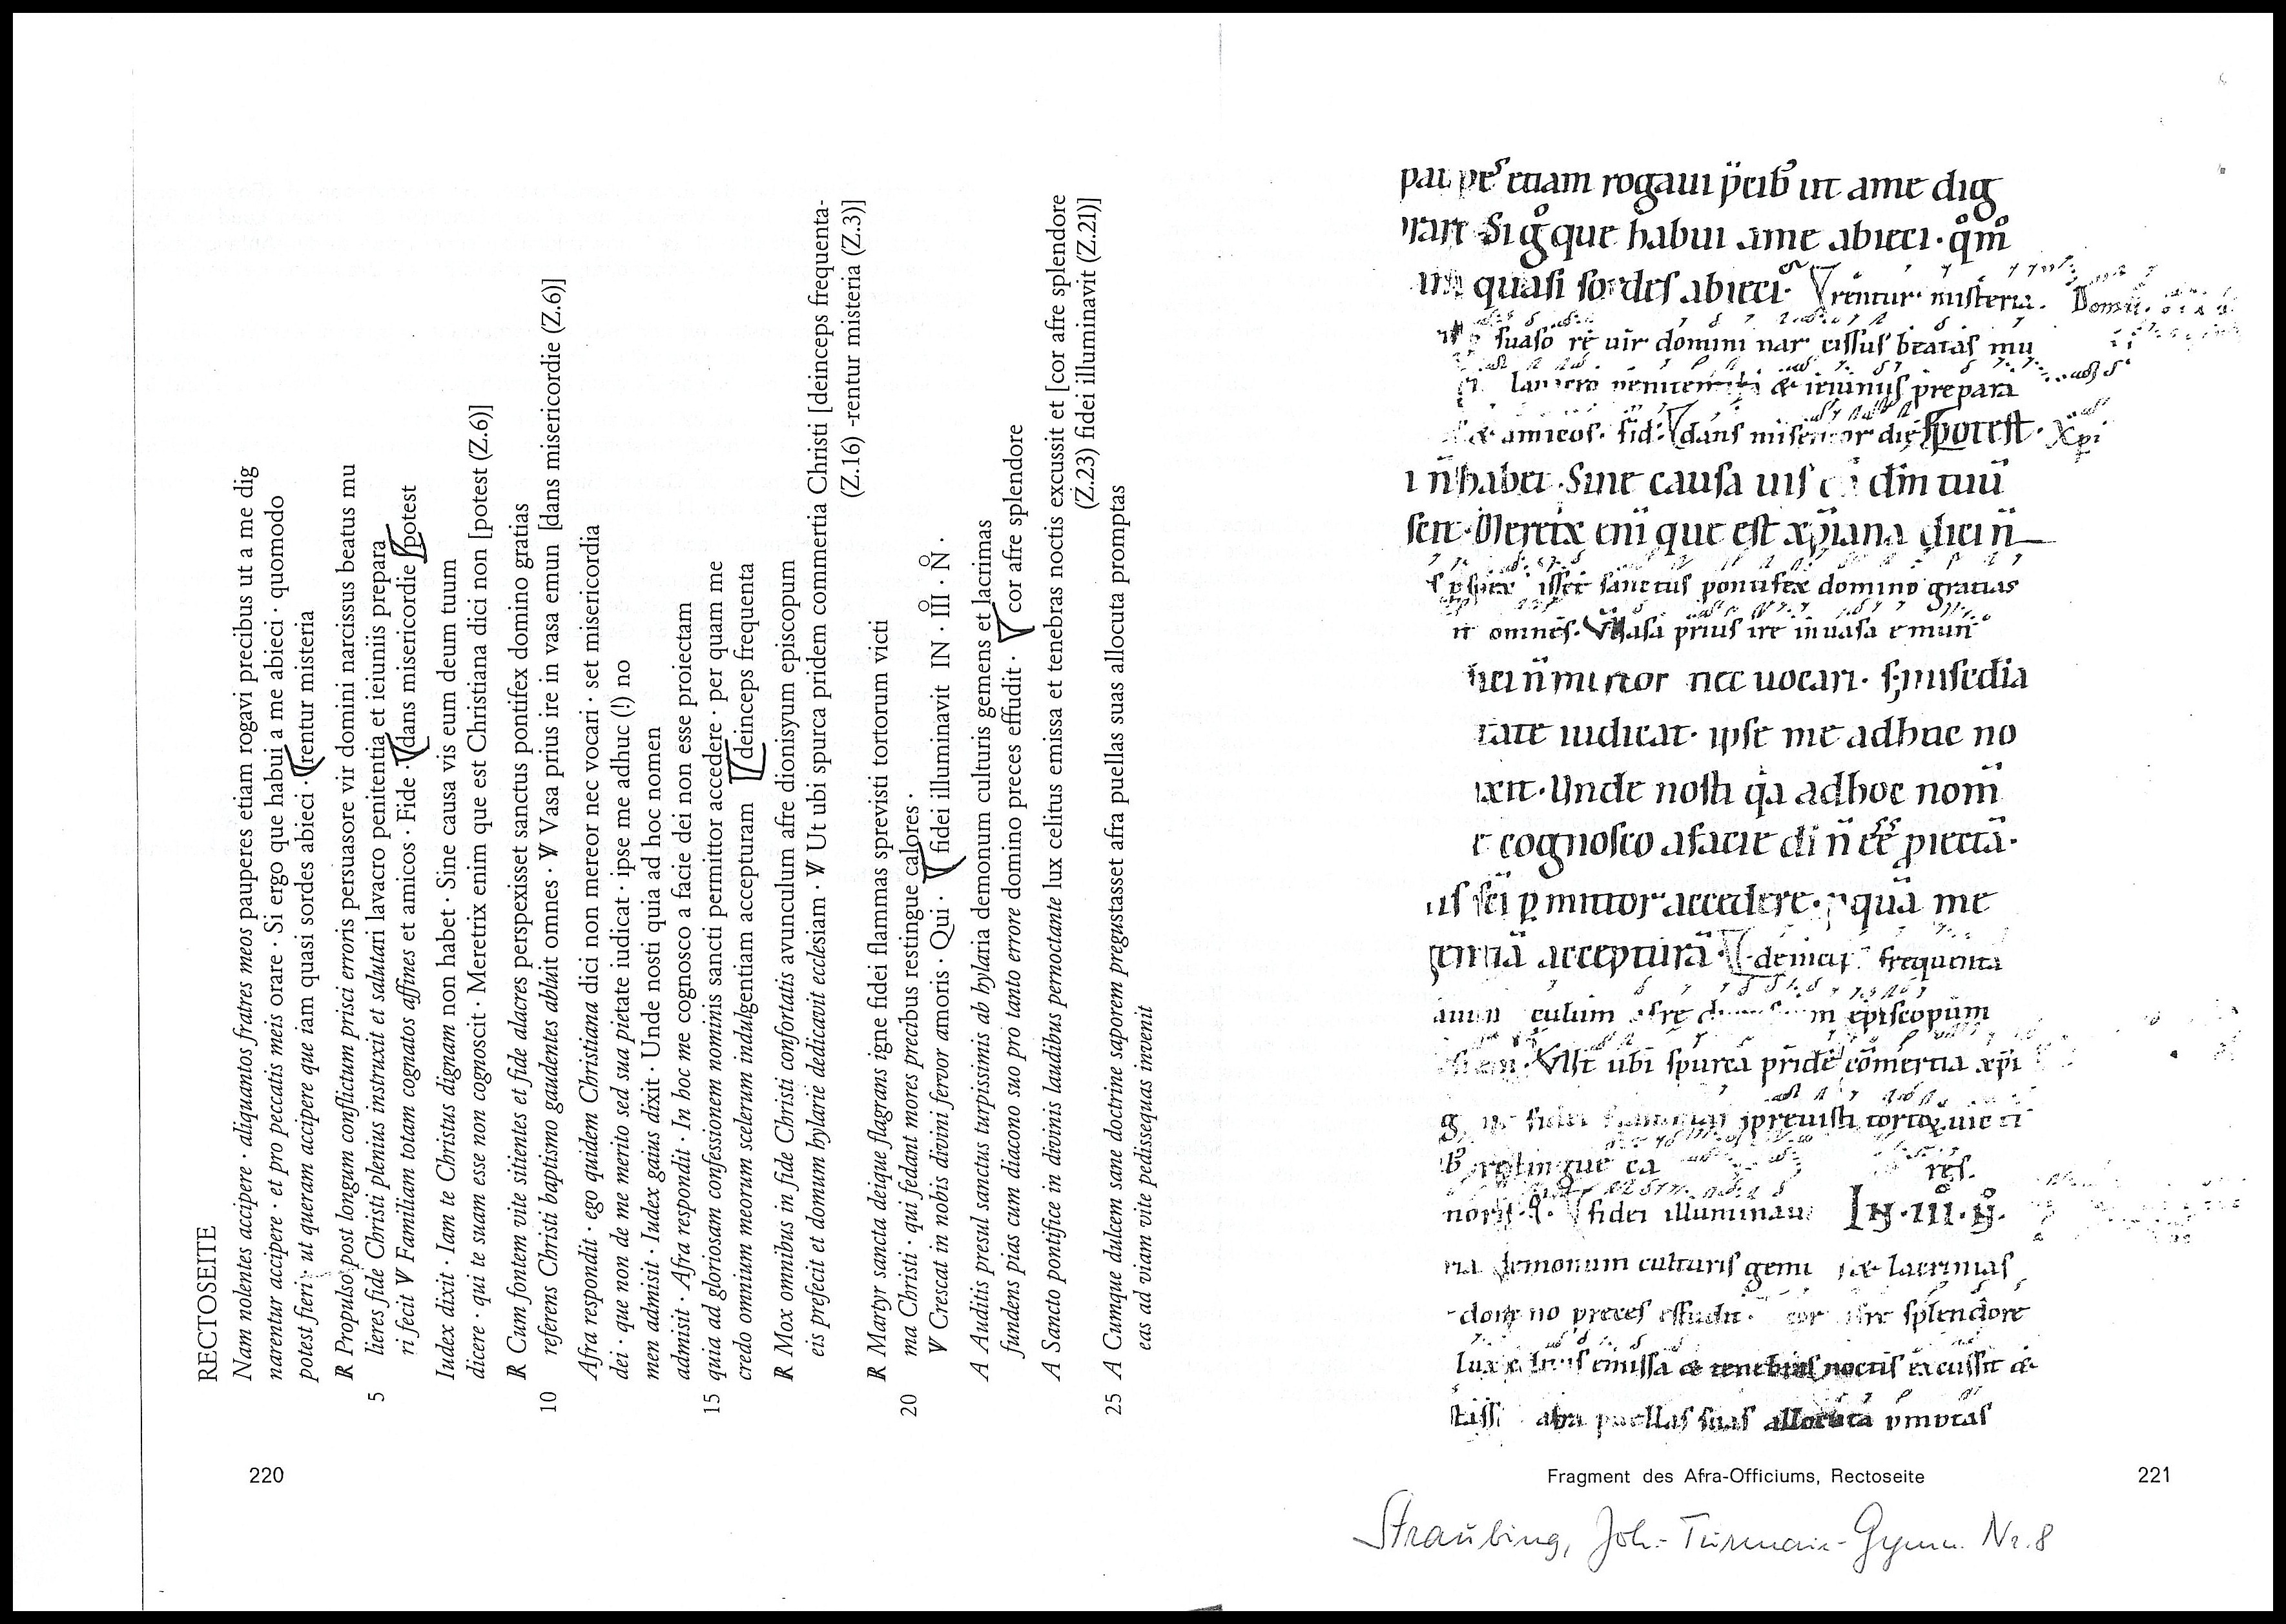 RECTOSEITE
Nam nolentes accipere · aliquantos fratres meos pauperes etiam rogavi precibus ut a me dig
narentur accipere · et pro peccatis meis orare · Si ergo que habui a me abieci · quomodo
potest fieri · ut queram accipere que iam quasi sordes abieci · rentur misteria
R Propulso post longum conflictum prisci erroris persuasore vir domini narcissus beatus mu
5 lieres fide Christi plenius instruxit et salutari lavacro penitentia et ieiuniis prepara
ri fecit V Familiam totam cognatos affines et amicos · Fide · dans misericordie potest
Iudex dixit · Iam te Christus dignam non habet · Sine causa vis eum deum tuum
dicere · qui te suam esse non cognoscit · Meretrix enim que est Christiana dici non [potest (Z.6)]
R Cum fontem vite sitientes et fide alacres perspexisset sanctus pontifex domino gratias
10 referens Christi baptismo gaudentes abluit omnes · V Vasa prius ire in vasa emun [dans misericordie (Z.6)]
Afra respondit · ego quidem Christiana dici non mereor nec vocari · set misericordia
dei · que non de me merito sed sua pietate iudicat · ipse me adhuc (!) no
men admisit · Iudex gaius dixit · Unde nosti quia ad hoc nomen
admisit · Afra respondit · In hoc me cognosco a facie dei non esse proiectam
15 quia ad gloriosam confessionem nominis sancti permittor accedere · per quam me
credo omnium meorum scelerum indulgentiam accepturam deinceps frequenta
R Mox omnibus in fide Christi confortatis avunculum afre dionisyum episcopum
eis prefecit et domum hylarie dedicavit ecclesiam · V Ut ubi spurca pridem commertia Christi [deinceps frequenta-
(Z.16) -rentur misteria (Z.3)]
R Martyr sancta deique flagrans igne fidei flammas sprevisti tortorum victi
20 ma Christi · qui fedant mores precibus restingue calores ·
V Crescat in nobis divini fervor amoris · Qui · fidei illuminavit IN · III · N̊ ·
A Auditis presul sanctus turpissimis ab hylaria demonum culturis gemens et lacrimas
fundens pias cum diacono suo pro tanto errore domino preces effudit · cor afre splendore
A Sancto pontifice in divinis laudibus pernoctante lux celitus emissa et tenebras noctis excussit et [cor afre splendore
(Z.23) fidei illuminavit (Z.21)]
25 A Cumque dulcem sane doctrine saporem pregustasset afra puellas suas allocuta promptas
eas ad viam vite pedissequas invenit
220
etiam rogaui p̄cib ut ame dig
Si g̊ que habui ame abieci · qm̊
quasi sordes abieci · rentur misteria.
suaso re uir domini nar cissus beatas mu
& ieiuniis prepara
& amicos · fid · dans misericordie potest · Xp̄i
n̄ habet · Sine causa uis dm̄ tuū
scit · Meretrix eni que est xp̄iana dici n̄
isset sanctus pontifex domino gratias
it omnes · Vasa prius ire inuasa emun
nec uocari · s; misedia
tate iudicat · ipse me adhuc no
ixit · Unde nosti qa adhoc nom̄
cognosco afacie di n̄ ee piectā ·
us sci p mittor accedere · quā me
gentiā acceptura · deincep frequenta
culum episcopum
Ut ubi spurca pridē comertia xp̄i
spreuisti tortoꝝ uicti
restingue ca res.
fidei illuminaui IN · III · N̊ ·
demonum culturis gemi & lacrimas
domino preces effudit · cor splendore
lux emissa & tenebras noctis excussit &
afra puellas suas allocuta pmptas
Fragment des Afra-Officiums, Rectoseite
221
Straubing, Joh.-Turmair-Gymn. Nr. 8